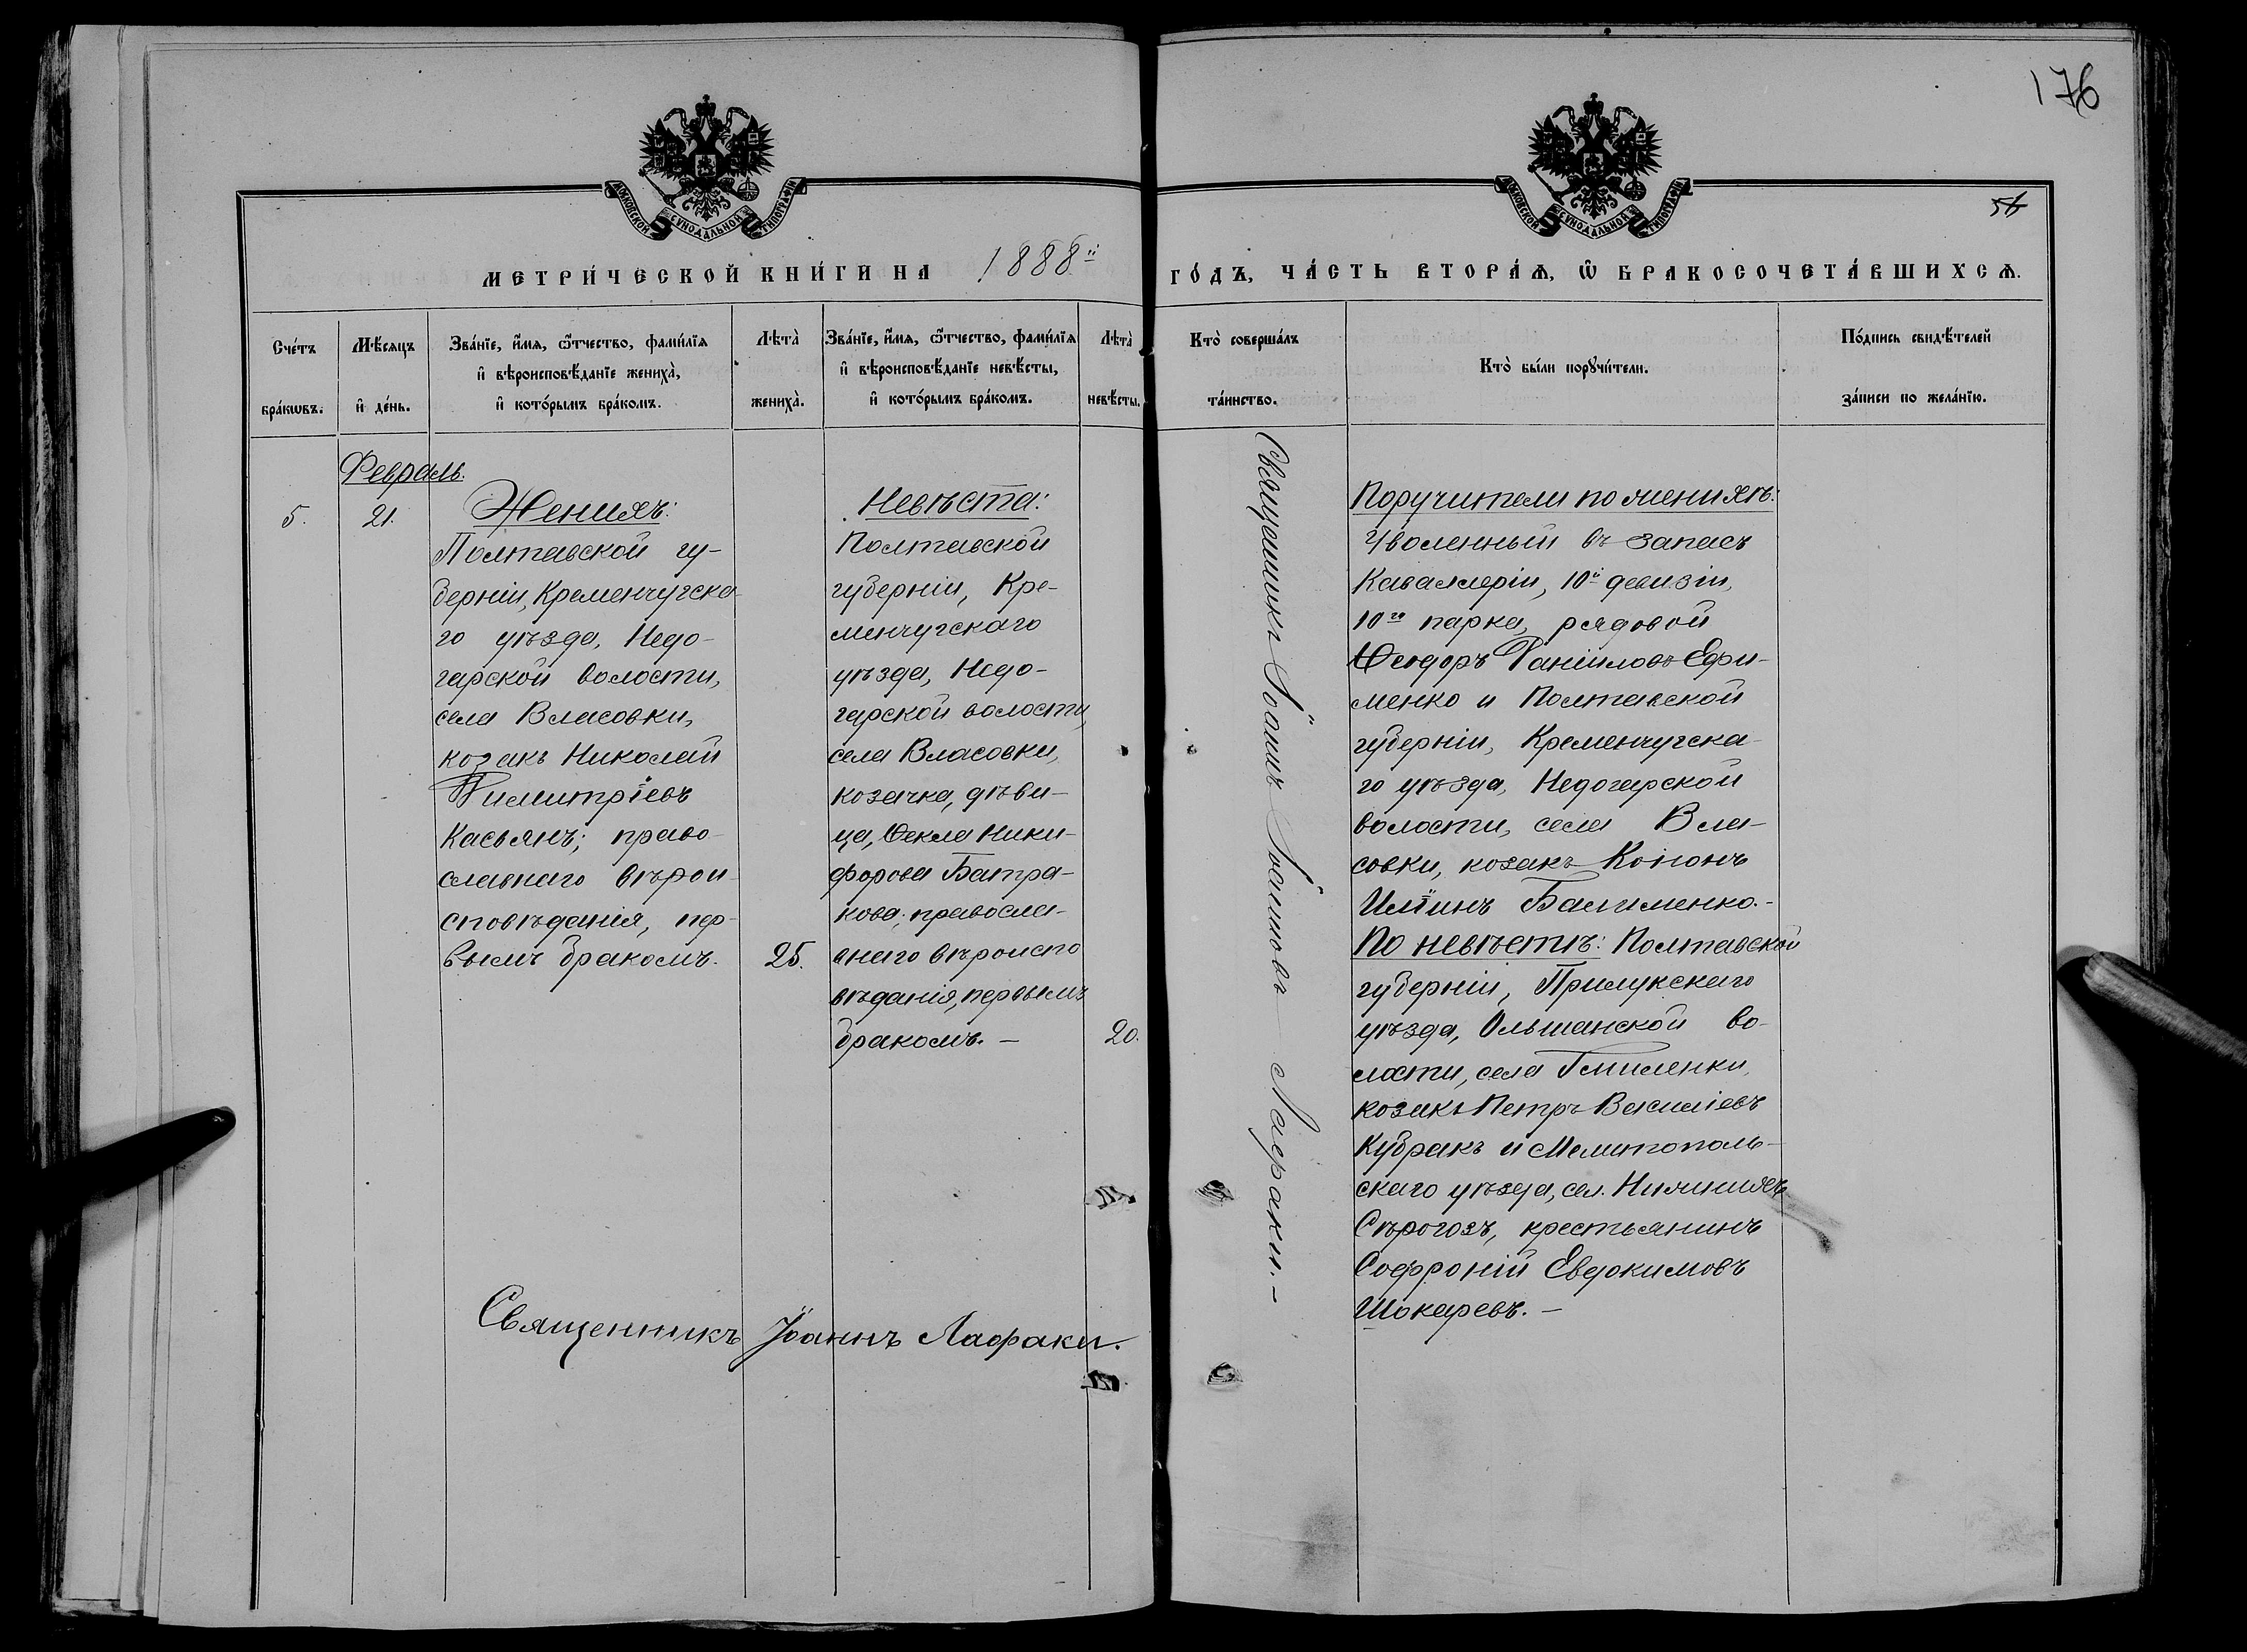 176
56
МОСКОВСКОЙ СѴНОДАЛЬНОЙ ТИПОГРАФІИ
МОСКОВСКОЙ СѴНОДАЛЬНОЙ ТИПОГРАФІИ
МЕТРИ́ЧЕСКОЙ КНИ́ГИ НА 1888й
ГО́ДЪ, ЧА́СТЬ ВТОРА́Ѧ, Ѿ БРАКОСОЧЕТА́ВШИХСѦ.
Сче́тъ
бра́кѡвъ.
Мѣ́сяцъ
и҆ де́нь.
Зва́нїе, и҆́мѧ, ѻ҆́тчество, фами́лїѧ
и҆ вѣроисповѣ́данїе жениха̀,
и҆ кото́рымъ бра́комъ.
Лѣта̀
жениха̀.
Зва́нїе, и҆́мѧ, ѻ҆́тчество, фами́лїѧ
и҆ вѣроисповѣ́данїе невѣ́сты,
и҆ кото́рымъ бра́комъ.
Лѣта̀
невѣ́сты.
Кто̀ соверша́лъ
та́инство.
Кто̀ бы́ли порꙋчи́тели.
По́дпись свидѣ́телей
за́писи по жела́нїю.
Февраль.
5.
21.
Женихъ:
Полтавской гу-
берніи, Кременчугска-
го уѣзда, Недо-
гарской волости,
села Власовки,
козакъ Николай
Димитріевъ
Касьянъ; право-
славнаго вѣрои-
сповѣданія, пер-
вымъ бракомъ.
25.
Невѣста:
Полтавской
губерніи, Кре-
менчугскаго
уѣзда, Недо-
гарской волости,
села Власовки,
козачка, дѣви-
ца, Ѳекла Ники-
форова Батра-
кова; правосла-
внаго вѣроиспо
вѣданія, первымъ
бракомъ. —
20.
Священникъ Іоаннъ Іоанновъ Лафраки. —
Поручители по женихѣ:
Уволенный въ запасъ
Кавалеріи, 10й девизіи,
10го парка, рядовой
Ѳеодоръ Даніиловъ Ефи-
менко и Полтавской
губерніи, Кременчугска-
го уѣзда, Недогарской
волости, села Вла-
совки, козакъ Кононъ
Иліинъ Балименко. -
По невѣстѣ: Полтавской
губерніи, Прилукскаго
уѣзда, Ольшанской во-
лости, села Гмиленки,
козакъ Петръ Василіевъ
Кубракъ и Мелитополь-
скаго уѣзда, сел. Нижнихъ
Сѣрогозъ, крестьянинъ
Софроній Евдокимовъ
Шокаревъ. —
Священникъ Іоаннъ Лафраки.